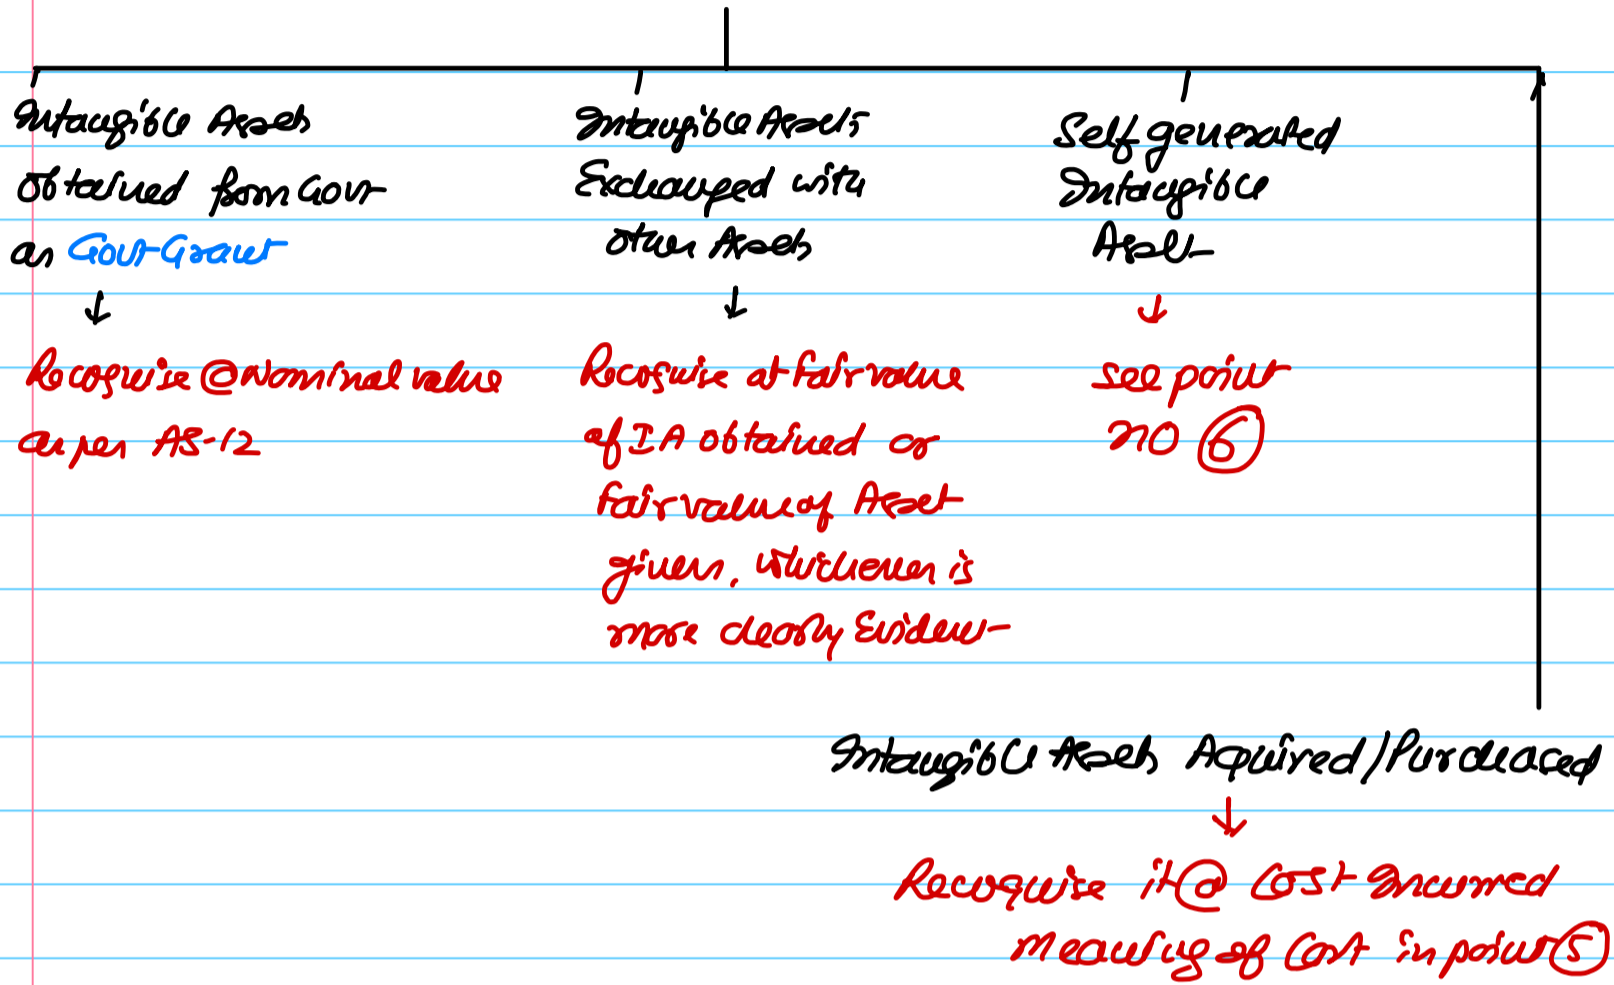 Intangible Assets
obtained from Govt
as Govt Grant
↓
Recognise @ Nominal value
as per AS-12
Intangible Assets
Exchanged with
other Assets
↓
Recognise at fair value
of IA obtained or
fair value of Asset
given, whichever is
more clearly Evident
Self generated
Intangible
Asset
↓
see point
no 6
Intangible Assets Acquired/Purchased
↓
Recognise it @ Cost Incurred
Meaning of Cost in point 5